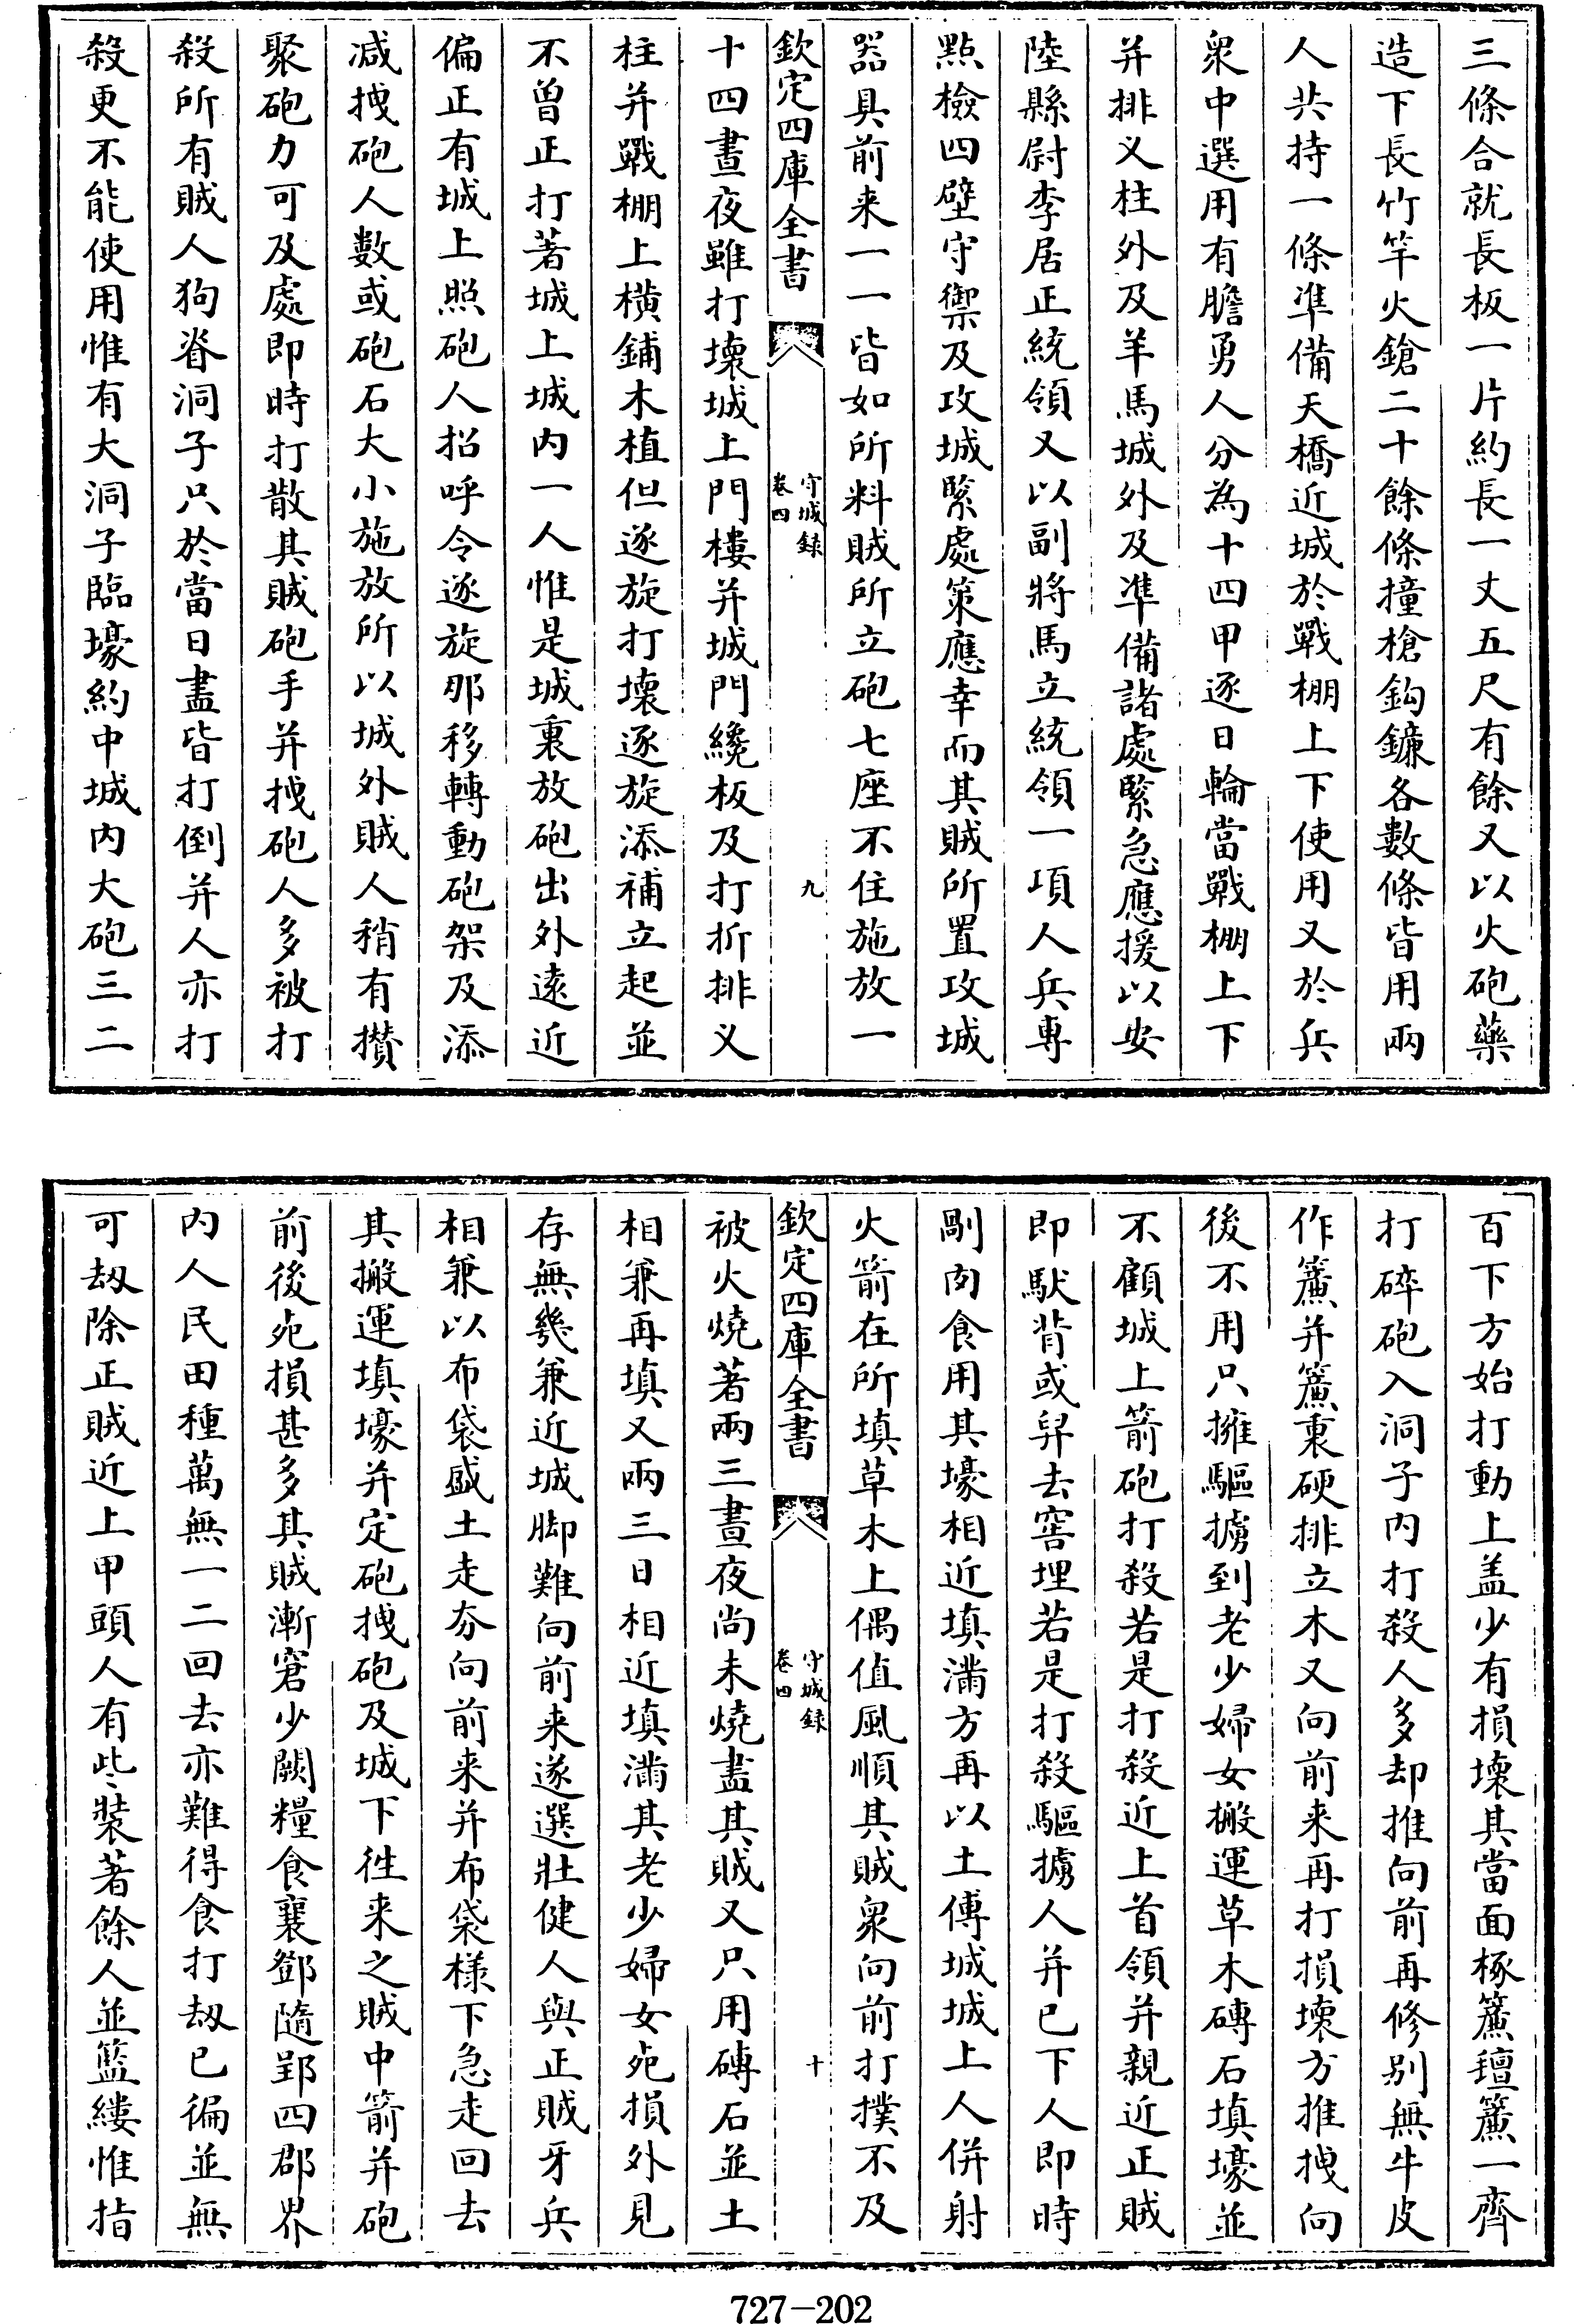 三條合就長板一片約長一丈五尺有餘又以火砲藥
造下長竹竿火鎗二十餘條撞槍鈎鐮各數條皆用兩
人共持一條凖備天橋近城於戰棚上下使用又於兵
衆中選用有膽勇人分為十四甲逐日輪當戰棚上下
并排义柱外及羊馬城外及凖備諸處緊急應援以安
陸縣尉李居正統領又以副將馬立統領一項人兵專
點檢四壁守禦及攻城緊處策應幸而其賊所置攻城
器具前来一一皆如所料賊所立砲七座不住施放一
欽定四庫全書
守城録
卷四
九
十四晝夜雖打壞城上門樓并城門纔板及打折排义
柱并戰棚上横鋪木植但逐旋打壞逐旋添補立起並
不曽正打著城上城内一人惟是城裏放砲出外逺近
偏正有城上照砲人招呼令逐旋那移轉動砲架及添
减拽砲人數或砲石大小施放所以城外賊人稍有攅
聚砲力可及處即時打散其賊砲手并拽砲人多被打
殺所有賊人狗脊洞子只於當日盡皆打倒并人亦打
殺更不能使用惟有大洞子臨壕約中城内大砲三二
百下方始打動上盖少有損壞其當面椓簾㲲簾一齊
打碎砲入洞子内打殺人多却推向前再修别無牛皮
作簾并簾裏硬排立木又向前来再打損壞方推拽向
後不用只擁驅擄到老少婦女搬運草木磚石填壕並
不顧城上箭砲打殺若是打殺近上首領并親近正賊
即馱背或舁去窖埋若是打殺驅擄人并已下人即時
剮肉食用其壕相近填滿方再以土傅城城上人併射
火箭在所填草木上偶值風順其賊衆向前打撲不及
欽定四庫全書
守城録
卷四
十
被火燒著兩三晝夜尚未燒盡其賊又只用磚石並土
相兼再填又兩三日相近填滿其老少婦女死損外見
存無幾兼近城脚難向前来遂選壯健人與正賊牙兵
相兼以布袋盛土走夯向前来并布袋様下急走回去
其搬運填壕并定砲拽砲及城下徃来之賊中箭并砲
前後死損甚多其賊漸窘少闕糧食襄鄧隨郢四郡界
内人民田種萬無一二回去亦難得食打刼已徧並無
可刼除正賊近上甲頭人有此裝著餘人並藍縷惟指
727-202